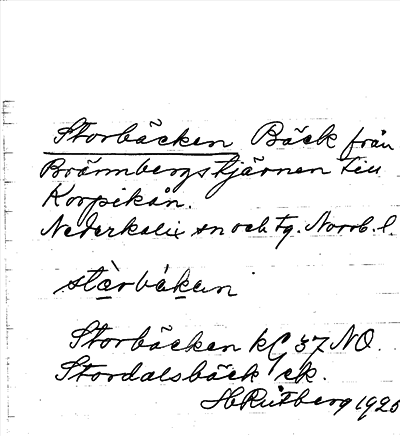 Storbäcken Bäck från
Brännbergstjärnen till
Korpikån.
Nederkalix sn och tg. Norrb. l.
stòrbäkun
Storbäcken kG 37 NO.
Stordalsbäck ek.
H Ruthberg 1926